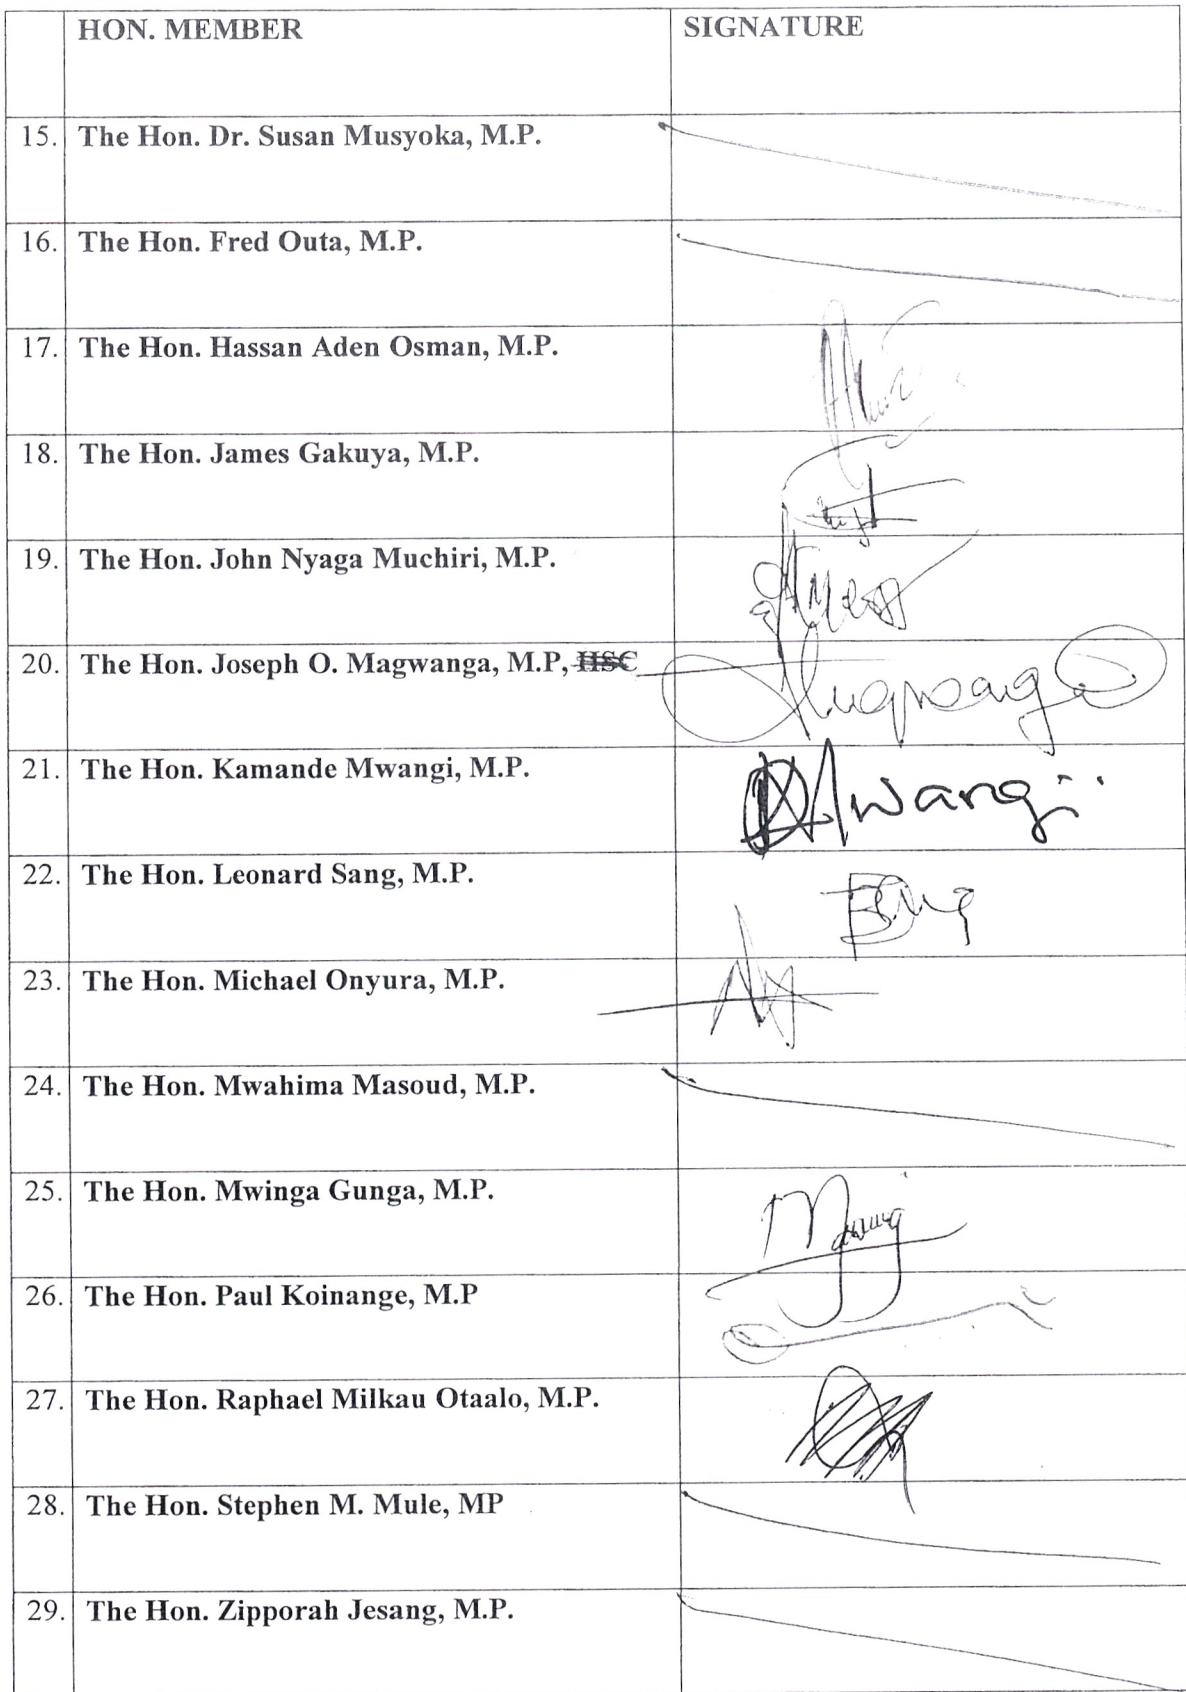 HON. MEMBER SIGNATURE
15. The Hon. Dr. Susan Musyoka, M.P.
16. The Hon. Fred Outa, M.P.
17. The Hon. Hassan Aden Osman, M.P.
18. The Hon. James Gakuya, M.P.
19. The Hon. John Nyaga Muchiri, M.P.
20. The Hon. Joseph O. Magwanga, M.P, HSC
21. The Hon. Kamande Mwangi, M.P. Mwangi
22. The Hon. Leonard Sang, M.P.
23. The Hon. Michael Onyura, M.P.
24. The Hon. Mwahima Masoud, M.P.
25. The Hon. Mwinga Gunga, M.P.
26. The Hon. Paul Koinange, M.P
27. The Hon. Raphael Milkau Otaalo, M.P.
28. The Hon. Stephen M. Mule, MP
29. The Hon. Zipporah Jesang, M.P.